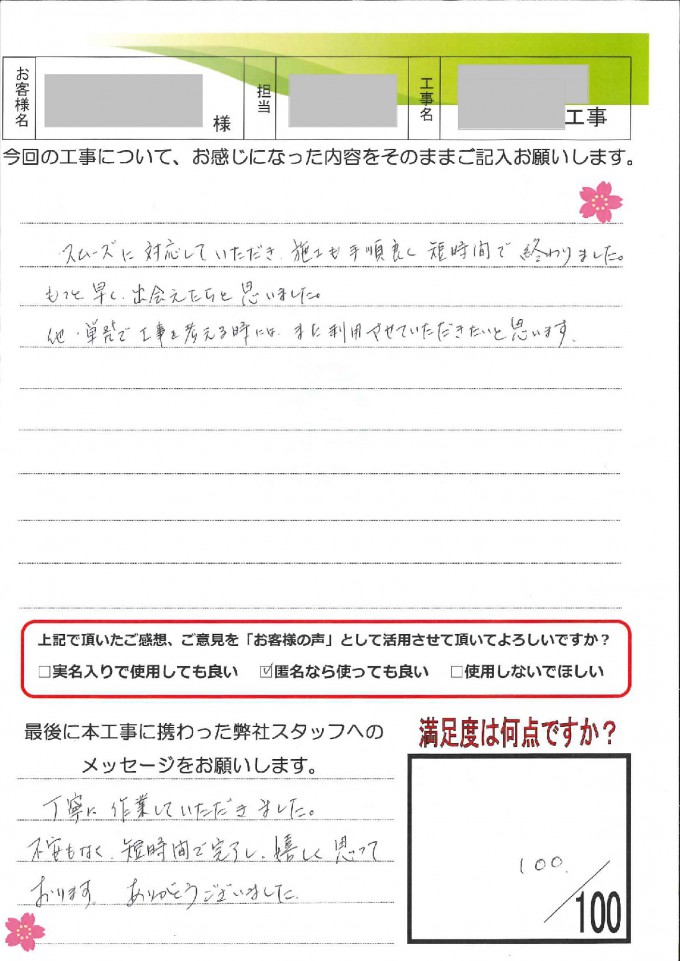 お客様名
様
担当
工事名
工事
今回の工事について、お感じになった内容をそのままご記入お願いします。
スムーズに対応していただき、施工も手順良く短時間で終わりました。
もっと早く、出会えたらと思いました。
他、単品で工事を考える時には、また利用させていただきたいと思います。
上記で頂いたご感想、ご意見を「お客様の声」として活用させて頂いてよろしいですか？
□実名入りで使用しても良い ☑匿名なら使っても良い □使用しないでほしい
最後に本工事に携わった弊社スタッフへの
メッセージをお願いします。
丁寧に作業していただきました。
不安もなく、短時間で完了し、嬉しく思って
おります。ありがとうございました。
満足度は何点ですか？
100.
/100